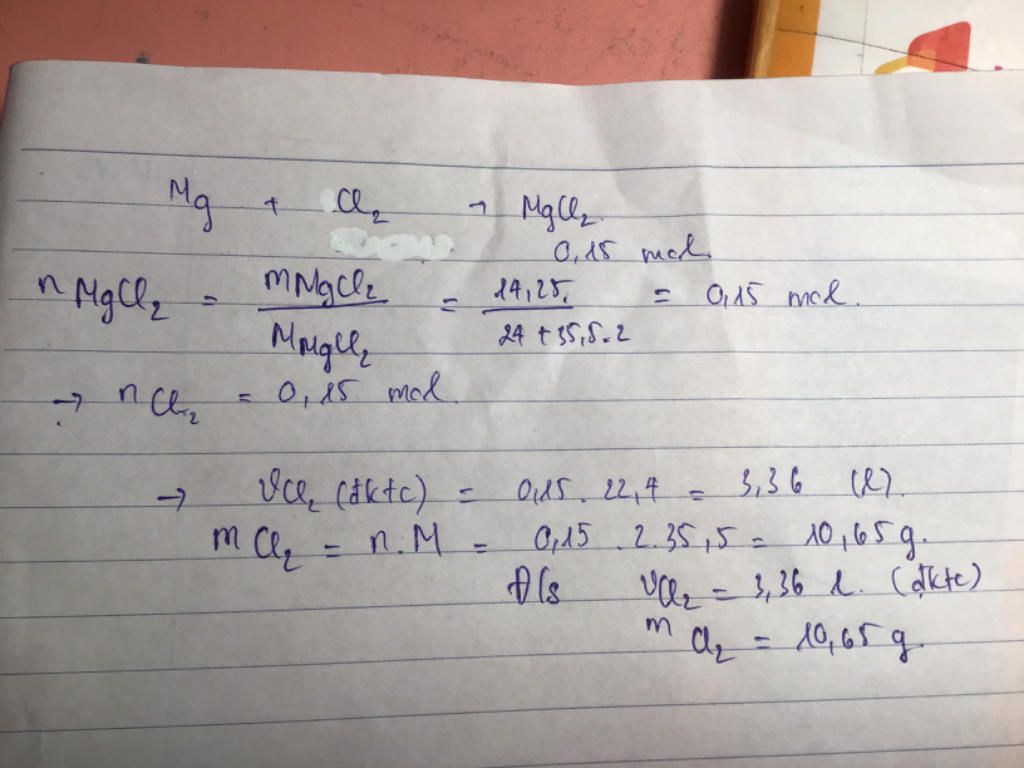 Mg + Cl₂ → MgCl₂
0,15 mol
nMgCl₂ = mMgCl₂ / MMgCl₂ = 14,25 / 24 + 35,5.2 = 0,15 mol.
→ nCl₂ = 0,15 mol.
→ VCl₂ (đktc) = 0,15 . 22,4 = 3,36 (l).
mCl₂ = n.M = 0,15 . 2.35,5 = 10,65 g.
Đ/s VCl₂ = 3,36 l. (đktc)
mCl₂ = 10,65 g.